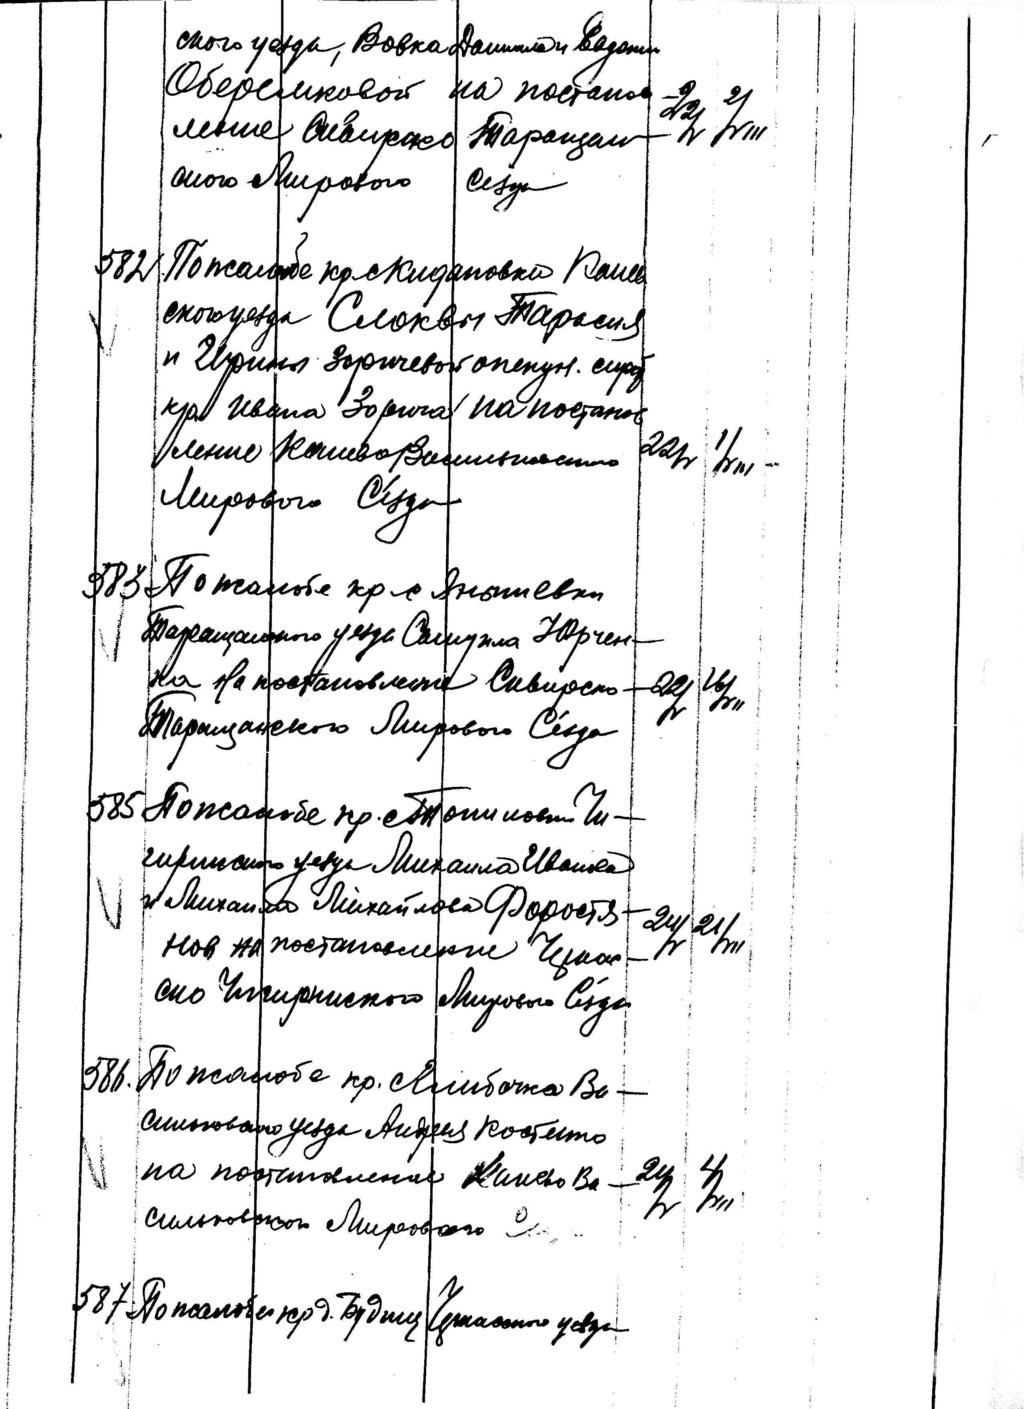 ского уезда, Вовка Даниила и Евдокии
Оберемковой на постанов
ление Сквирско Таращан
ского Мирового Сезда
22/V 2/VIII
582 По жалобе кр. с Кидановки Канев
ского уезда Слоквы Тарасия
и Ирины Зоричевой опекун. сирот
кр. Ивана Зорича на постанов
ление Канево Васильковского 22/V 1/VIII
Мирового Сезда
583 По жалобе кр. с Янышевки
Таращанского уезда Самуила Юрчен-
ка на постановление Сквирско- 22/V 16/VII
Таращанского Мирового Сезда
585 По жалобе кр. с Топиловки Чи-
гиринского уезда Михаила Иванова
и Михаила Михайлова Форостя-
нов на постановление Черкас- 24/V 21/VII
ско Чигиринского Мирового Сезда
586. По жалобе кр. с Ва-
сильковского уезда Андрея Костенко
на постановление Канево Ва- 24/V 4/VII
сильковского Мирового
587 По жалобе кр д. Будищ Черкасского уезда